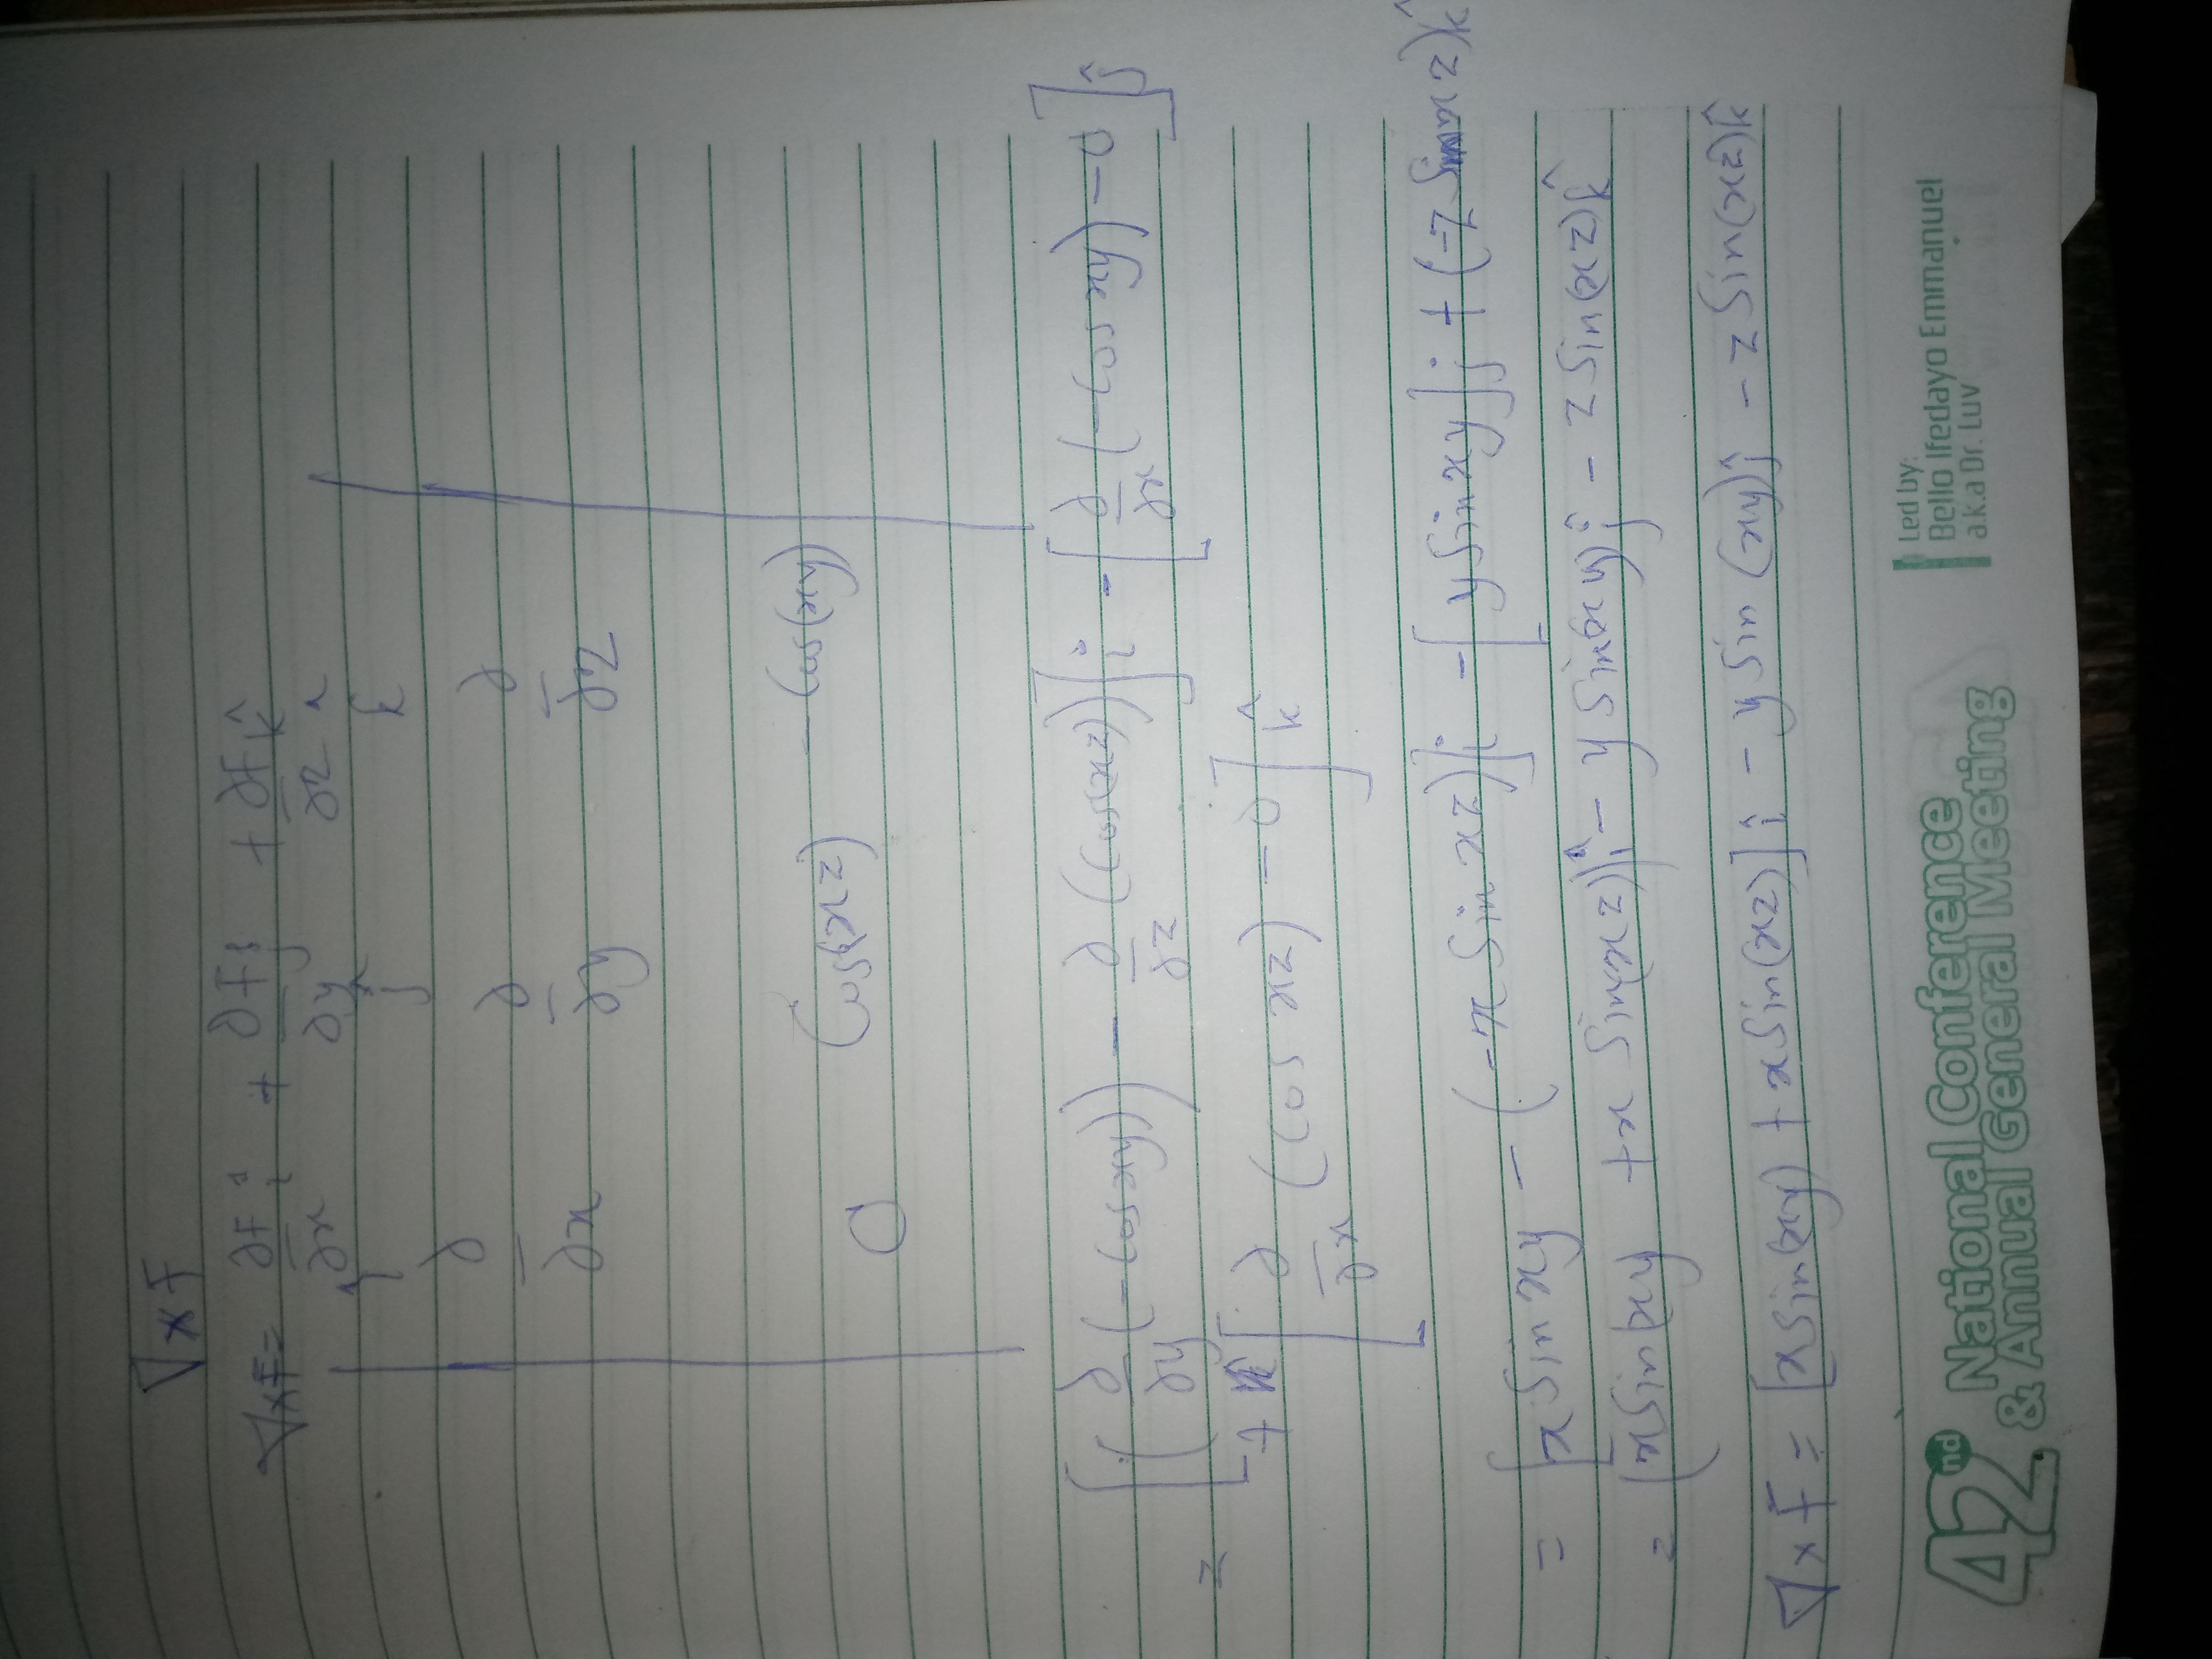 ∇ x F
∇xF = ∂F/∂x i + ∂F/∂y j + ∂F/∂z k̂
i j k
∂/∂x ∂/∂y ∂/∂z
0 Cos(xz) - Cos(xy)
= [(∂/∂y (-Cos xy)) - ∂/∂z (Cos(xz))] i - [∂/∂x (-Cos xy) - 0] ĵ
+ [∂/∂x (Cos xz) - 0] k̂
= [x Sin xy - (-x Sin xz)] i - [y Sin xy] j + (-z Sin xz) k̂
= (x Sin(xy + x Sin(xz)) i - y Sin(xy) j - z Sin(xz) k̂
∇ x F = [x Sin(xy) + x Sin(xz)] î - y Sin (xy) ĵ - z Sin(xz) k̂
42nd National Conference
& Annual General Meeting
Led by:
Bello Ifedayo Emmanuel
a.k.a Dr. Luv